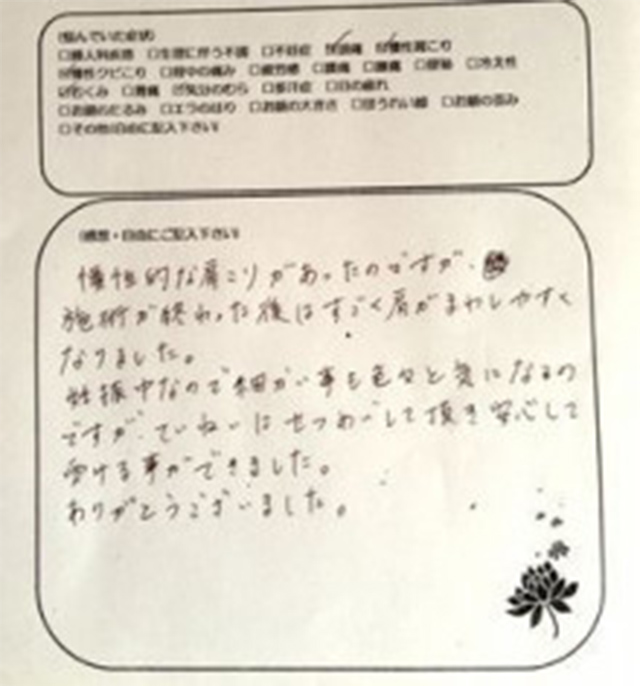 (悩んでいた症状)
□婦人科疾患 □生理に伴う不調 □不妊症 ☑頭痛 ☑慢性肩こり
☑慢性クビこり □背中の痛み □疲労感 □腰痛 □膝痛 □便秘 □冷え性
☑むくみ □胃痛 ☑気分のむら □多汗症 □目の疲れ
□お顔のたるみ □エラのはり □お顔の大きさ □ほうれい線 □お顔の歪み
□その他(自由に記入下さい)
(感想・自由にご記入下さい)
慢性的な肩こりがあったのですが、
施術が終わった後はすごく肩がまわしやすく
なりました。
妊娠中なので細かい事も色々と気になるの
ですが、ていねいにせつめいして頂き安心して
受ける事ができました。
ありがとうございました。